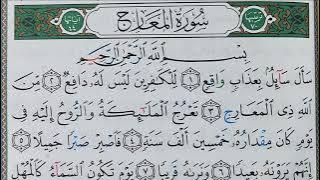 سُورَةُ الْمَعَارِجِ
بِسْمِ اللَّهِ الرَّحْمَٰنِ الرَّحِيمِ
سَأَلَ سَائِلٌ بِعَذَابٍ وَاقِعٍ ١ لِلْكَافِرِينَ لَيْسَ لَهُ دَافِعٌ ٢ مِنَ
اللَّهِ ذِي الْمَعَارِجِ ٣ تَعْرُجُ الْمَلَائِكَةُ وَالرُّوحُ إِلَيْهِ فِي
يَوْمٍ كَانَ مِقْدَارُهُ خَمْسِينَ أَلْفَ سَنَةٍ ٤ فَاصْبِرْ صَبْرًا جَمِيلًا ٥
إِنَّهُمْ يَرَوْنَهُ بَعِيدًا ٦ وَنَرَاهُ قَرِيبًا ٧ يَوْمَ تَكُونُ السَّمَاءُ كَالْمُهْلِ